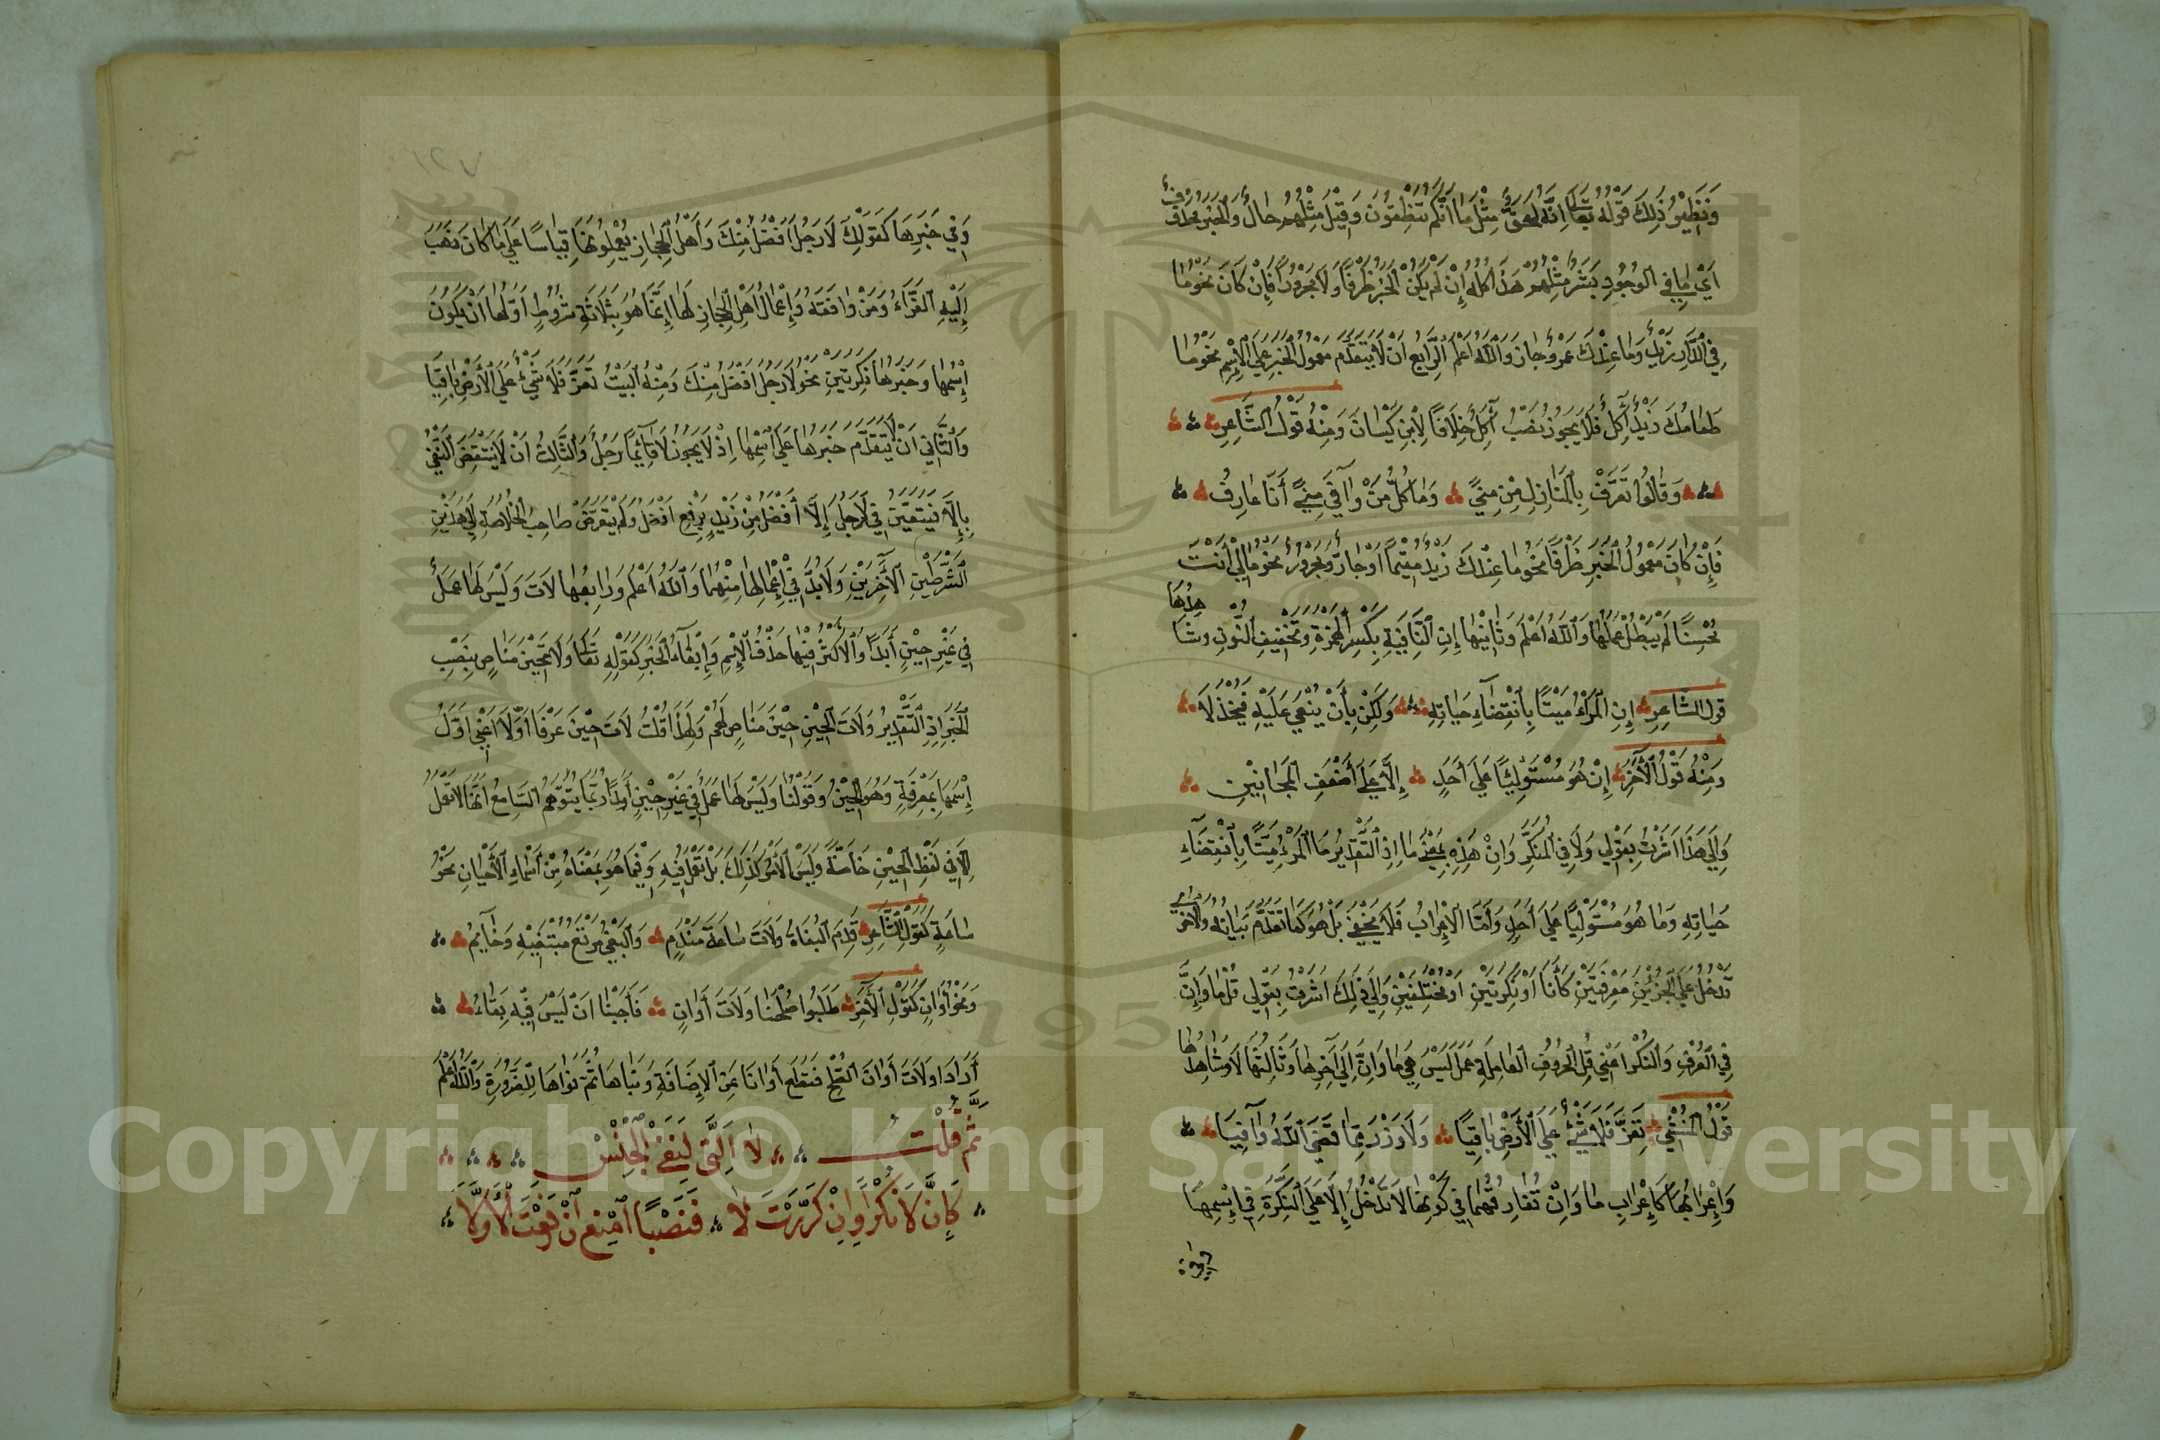 وَنَظِيْرُ ذٰلِكَ قَوْلُهُ تَعَالَى اِنَّهُ لَحَقٌّ مِثْلَ مَا اَنَّكُمْ تَنْطِقُوْنَ وَقِيْلَ مِثْلَهُمْ حَالٌ وَالْخَبَرُ مَحْذُوْفٌ
اَيْ مَا فِي الْوُجُودِ بَشَرٌ مِثْلُهُمْ هَذَا كُلُّهُ إِنْ لَمْ يَكُنْ الْخَبَرُ ظَرْفًا وَلَا مَجْرُوْرًا فَإِنْ كَانَ نَحْوُ مَا
فِي الدَّارِ زَيْدٌ وَمَا عِنْدَكَ عَمْرٌو جَازَ وَاَللّٰهُ اَعْلَمُ الرَّابِعُ اَنْ لَا يَتَقَدَّمَ مَعْمُوْلُ الْخَبَرِ عَلَى الْاِسْمِ نَحْوُ مَا
طَعَامَكَ زَيْدٌ آكِلٌ فَلَا يَجُوْزُ نَصْبُ آكِلٌ خِلَافًا لِابْنِ كَيْسَانَ وَمِنْهُ قَوْلُ الشَّاعِرِ
وَقَالُوْا تَعَرَّفْهَا الْمَنَازِلَ مِنْ مِنًى وَمَا كُلُّ مَنْ وَافَى مِنًى أَنَا عَارِفُ
فَإِنْ كَانَ مَعْمُوْلُ الْخَبَرِ ظَرْفًا نَحْوُ مَا عِنْدَكَ زَيْدٌ مُقِيْمًا اَوْ جَارٌّ وَمَجْرُوْرٌ نَحْوُ مَا بِي أَنْتَ
مُحْسِنًا لَمْ يَبْطُلْ عَمَلُهَا وَاللّٰهُ اَعْلَمُ وَثَانِيْهَا إِنِ النَّافِيَةِ بِكَسْرِ الْهَمْزَةِ وَتَخْفِيْفِ النُّوْنِ وَشَاهِدُهَا
قول الشَّاعِرِ إِنِ الْمَرْءُ مَيْتًا بِانْقِضَاءِ حَيَاتِهِ وَلَكِنْ بِأَنْ يُبْغَى عَلَيْهِ فَيُخْذَلَا
وَمِنْهُ قَوْلُ الْآخَرِ إِنْ هُوَ مُسْتَوْلِيًا عَلَى اَحَدٍ إِلَّا عَلَى أَضْعَفِ الْمَجَانِيْنِ
وَاِلَى هَذَا اَشَرْتُ بِقَوْلِي وَلَا فِي الْمُنَكَّرِ وَاِنْ هَذِهِ بِمَعْنَى مَا اِذِ التَّقْدِيْرُ مَا الْمَرْءُ مَيْتًا بِانْقِضَاءِ
حَيَاتِهِ وَمَا هُوَ مُسْتَوْلِيًا عَلَى اَحَدٍ وَاَمَّا الْاِعْرَابُ فَلَا يَخْفَى بَلْ هُوَ كَمَا تَقَدَّمَ بَيَانُهُ
تَدْخُلُ عَلَى الْجُزْئَيْنِ مَعْرِفَتَيْنِ كَانَا اَوْ نَكِرَتَيْنِ اَوْ مُخْتَلِفَيْنِ وَاِلَى ذٰلِكَ اَشَرْتُ بِقَوْلِي قُلْ مَا وَاِنْ
فِي الْعُرْفِ وَالنُّكْرِ اَعْنِي قُلْ الْحُرُوْفُ الْعَامِلَةِ عَمَلَ لَيْسَ هِيَ مَا وَاِنْ اِلَى آخِرِهَا وَثَالِثُهَا لَا وَشَاهِدُهَا
قَوْلُ الْمُنْشِئِ تَعَزَّ فَلَا شَيْءٌ عَلَى الْأَرْضِ بَاقِيًا وَلَا وَزَرٌ مِمَّا قَضَى اللّٰهُ وَاقِيَا
وَاِعْرَابُهَا كَاِعْرَابِ مَا وَاِنْ تُفَارِقُهُمَا فِي كَوْنِهَا لَا تَدْخُلُ اِلَّا عَلَى النَّكِرَةِ فِي اِسْمِهَا
وَفِي خَبَرِهَا كَقَوْلِكَ لَا رَجُلٌ اَفْضَلَ مِنْكَ وَاَهْلُ الْحِجَازِ يُعْمِلُوْنَهَا قِيَاسًا عَلَى مَا كَانَ ذَهَبَ
إِلَيْهِ الْفَرَّاءُ وَمَنْ وَافَقَهُ وَإِعْمَالُ اَهْلِ الْحِجَازِ لَهَا اِنَّمَا هُوَ بِثَلَاثَةِ شُرُوْطٍ اَوَّلُهَا اَنْ يَكُوْنَ
اِسْمُهَا وَخَبَرُهَا نَكِرَتَيْنِ نَحْوُ لَا رَجُلٌ اَفْضَلَ مِنْكَ وَمِنْهُ الْبَيْتُ تَعَزَّ فَلَا شَيْءٌ عَلَى الْأَرْضِ بَاقِيَا
وَالثَّانِي اَنْ لَا يَتَقَدَّمَ خَبَرُهَا عَلَى اسْمِهَا اِذْ لَا يَجُوْزُ لَا قَائِمًا رَجُلٌ وَالثَّالِثُ اَنْ لَا يَنْتَقِضَ النَّفْيُ
بِإِلَّا فَيَتَعَيَّنُ فِي لَا رَجُلٌ إِلَّا أَفْضَلُ مِنْ زَيْدٍ بِرَفْعِ اَفْضَلُ وَلَمْ يَتَعَرَّضْ صَاحِبُ الْخُلَاصَةِ لِهَذَيْنِ
الشَّرْطَيْنِ الْآخَرَيْنِ وَلَا بُدَّ فِي اِعْمَالِهَا مِنْهُمَا وَاللّٰهُ اَعْلَمُ وَرَابِعُهَا لَاتَ وَلَيْسَ لَهَا عَمَلٌ
فِي غَيْرِ حِيْنٍ أَبَدًا وَالْاَكْثَرُ فِيْهَا حَذْفُ الْاِسْمِ وَاِبْقَاءُ الْخَبَرِ كَقَوْلِهِ تَعَالَى وَلَاتَ حِيْنَ مَنَاصٍ بِنَصْبِ
الْخَبَرِ اِذِ التَّقْدِيْرُ وَلَاتَ الْحِيْنُ حِيْنَ مَنَاصٍ لَهُمْ وَلِهَذَا قُلْتُ لَاتَ حِيْنَ عَرْفَا اَوَّلَا اَعْنِي اَوَّلُ
اِسْمُهَا بِمَعْرِفَةٍ وَهُوَ الْحِيْنُ وَقَوْلُنَا وَلَيْسَ لَهَا عَمَلٌ فِي غَيْرِ حِيْنٍ أَبَدًا رُبَّمَا يَتَوَهَّمُ السَّامِعُ اَنَّهَا لَا تَعْمَلُ
اِلَّا فِي لَفْظِ الْحِيْنِ خَاصَّةً وَلَيْسَ الْاَمْرُ كَذٰلِكَ بَلْ تَعْمَلُ فِيْهِ وَفِيْمَا هُوَ بِمَعْنَاهُ مِنْ اَسْمَاءِ الْأَحْيَانِ نَحْوُ
سَاعَةٍ كَقَوْلِ الشَّاعِرِ نَدِمَ الْبُغَاةُ وَلَاتَ سَاعَةَ مَنْدَمٍ وَالْبَغْيُ مَرْتَعُ مُبْتَغِيْهِ وَخِيْمُ
وَنَحْوُ أَوَانٍ كَقَوْلِ الْآخَرِ طَلَبُوْا صُلْحَنَا وَلَاتَ أَوَانٍ فَأَجَبْنَا اَنْ لَيْسَ حِيْنَ بَقَاءِ
أَرَادَ وَلَاتَ أَوَانَ الصُّلْحِ فَقَطَعَ أَوَانًا عَنِ الْإِضَافَةِ وَبَنَاهَا ثُمَّ نَوَّنَهَا لِلضَّرُوْرَةِ وَاللّٰهُ اَعْلَمُ
ثُمَّ قُلْتُ لَا الَّتِي لِنَفْيِ الْجِنْسِ
كَإِنَّ لَا نُكْرًا وَاِنْ كَرَّرْتَ لَا فَنَصْبًا امْنَعْ اِنْ رَفَعْتَ الْأَوَّلَا